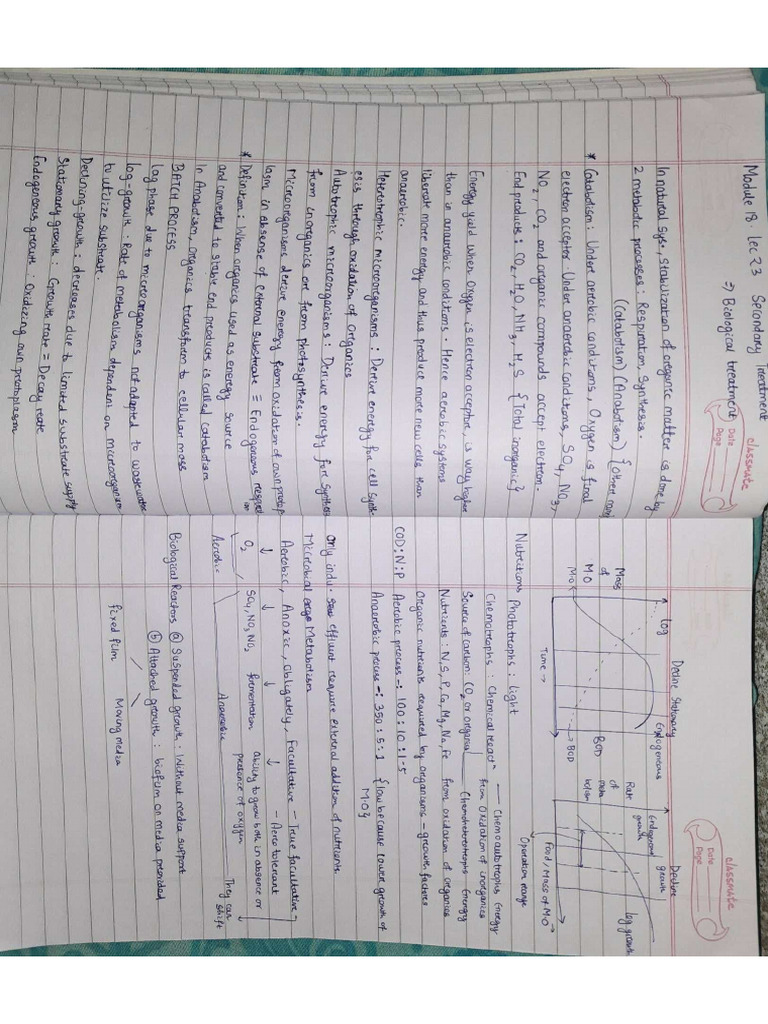 Module 18. Lec 23 Secondary Treatment
⇒ Biological treatment
classmate
Date
Page
In natural sys., stabilization of organic matter is done by
2 metabolic processes: Respiration, Synthesis.
(Catabolism) (Anabolism) {Other name
* Catabolism: Under aerobic conditions, Oxygen is final
electron acceptor. Under anaerobic conditions, SO4, NO3,
NO2, CO2 and organic compounds accept electron.
End products: CO2, H2O, NH3, H2S {Total inorganic}
Energy yield when Oxygen is electron acceptor, is way higher
than in anaerobic conditions. Hence aerobic systems
liberate more energy and thus produce more new cells than
anaerobic.
Heterotrophic microorganisms: Derive energy for cell synth-
esis through oxidation of organics
Autotrophic microorganisms: Derive energy for synthesis
from inorganics or from photosynthesis.
Microorganisms derive energy from oxidation of own protop-
lasm in absense of external substrate ≡ Endogenous respirat
ion
* Definition: When organics used as energy source
and converted to stable end products is called catabolism
In Anabolism, organics transform to cellular mass
BATCH PROCESS
Lag phase due to microorganisms not adapted to wastewater
log-growth: Rate of metabolism dependent on microorganism
to utilize substrate.
Declining-growth: decreases due to limited substrate supply
Stationary growth: Growth rate = Decay rate
Endogenous growth: Oxidizing own protoplasm
classmate
Date
Page
Log Decline Stationary Endogenous
Mass
of
MO
M.O
BOD
→BOD
Time →
Rate
of
meta
bolism
Endogenous
growth
Decline
growth
log growth
Food/Mass of MO
Operation range
Nutritions Phototrophs: Light
Chemotrophs: Chemical reactn — Chemoautotrophs Energy
from Oxidation of inorganics
Source of carbon: CO2 or organic — Chemoheterotrophs Energy
from oxidation of organics
Nutrients: N, S, P, Ca, Mg, Na, Fe
Organic nutrients required by organisms – growth factors
COD:N:P Aerobic process -: 100:10:1-5
Anaerobic process -: 350:5:1 {low because lower growth of
M.O}
Only indu. effluent require external addition of nutrients
Microbial Metabolism
Aerobic, Anoxic, Obligately, Facultative – True facultative
– Aero tolerant
O2 SO4, NO3, NO2 fermentation Ability to grow both in absence or
presence of oxygen
Aerobic Anaerobic They can
shift
Biological Reactors ⓐ Suspended growth: Without media support
ⓑ Attached growth: biofilm on media provided
fixed film Moving media